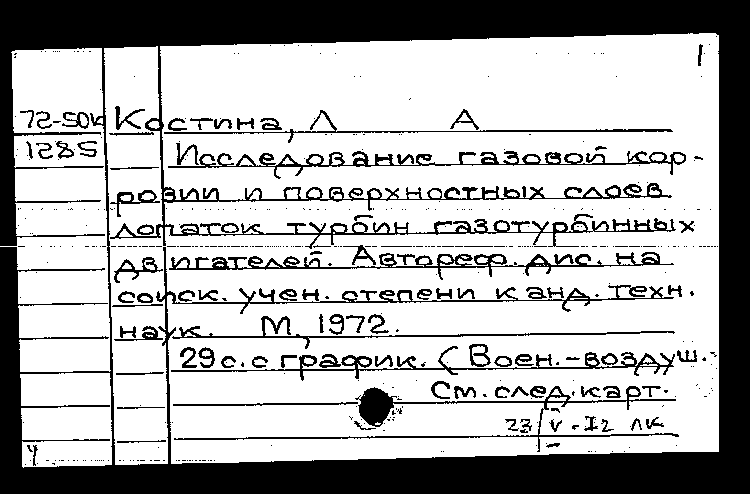 1
72-50к Костина, Л А
1285 Исследование газовой кор-
розии и поверхностных слоев
лопаток турбин газотурбинных
двигателей. Автореф. дис. на
соиск. учен. степени канд. техн.
наук. М., 1972.
29 с. с график. (Воен.-воздуш.
См. след. карт.
23/V-72 ЛК